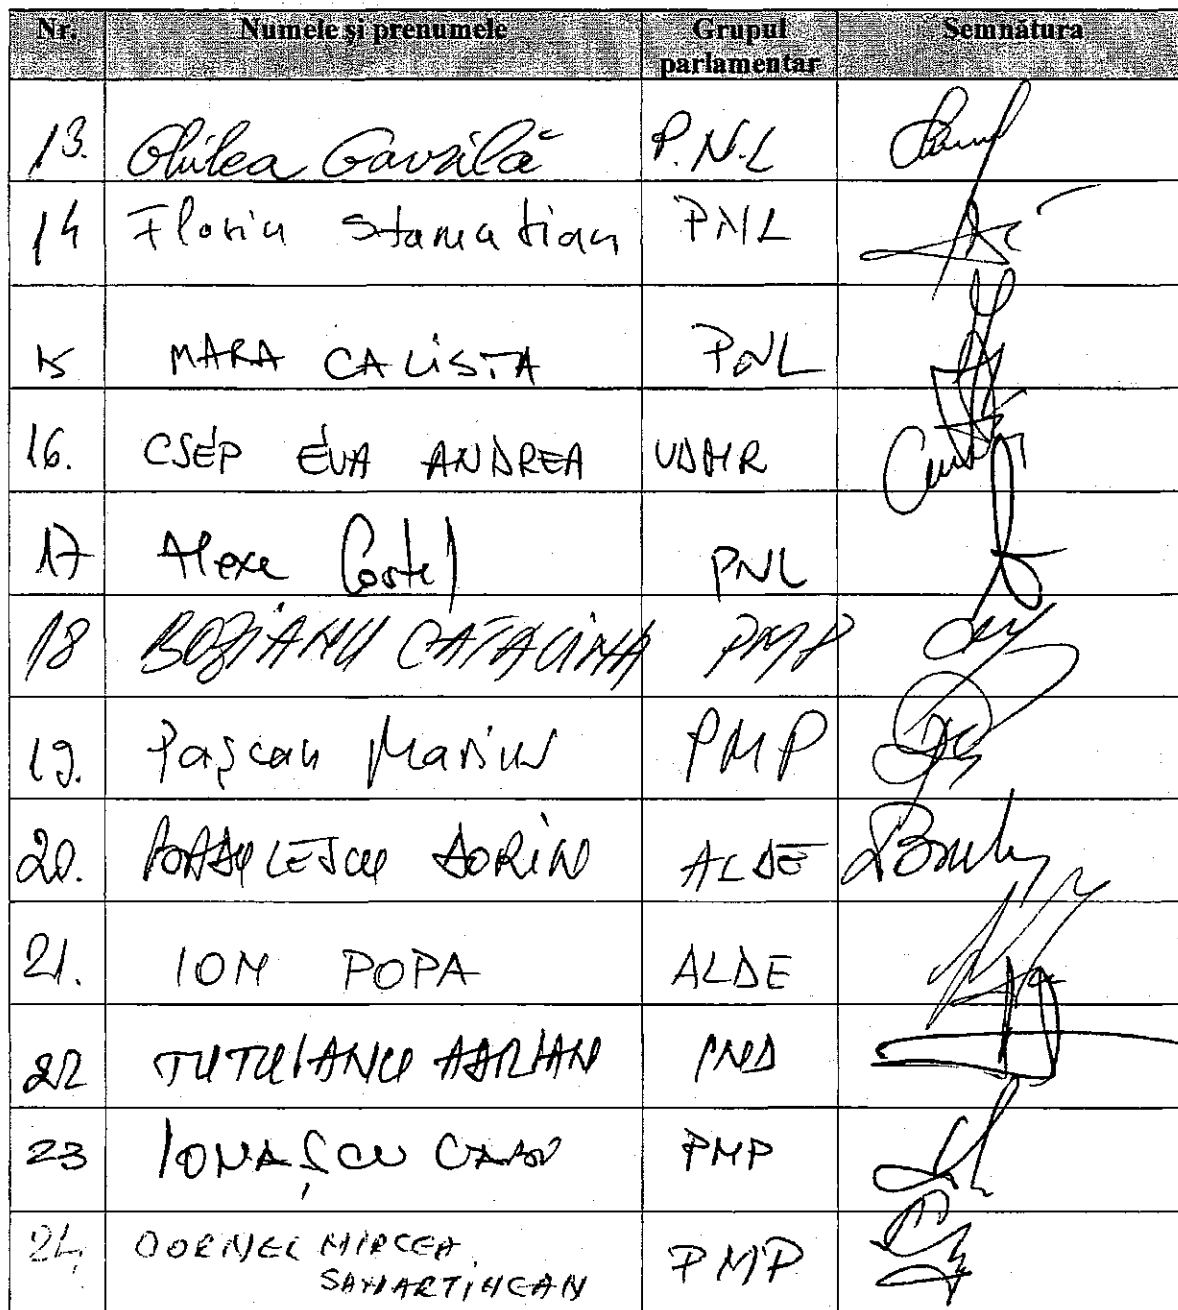 Nr. Numele și prenumele Grupul parlamentar Semnătura
13. Ghilea Găvrilă P.N.L
14 Florin Stamatian PNL
15 MARA CALISTA PNL
16. CSÉP ÉVA ANDREA UDMR
17 Alexe Costel PNL
18 BOZIANU CATALINA PMP
19. Pașcan Marius PMP
20. BĂDULESCU DORIN ALDE
21. ION POPA ALDE
22 TUTUIANU ADRIAN
23 IONAȘCU PMP
24. DORNEL MIRCEA
SAMARTINEAN PMP